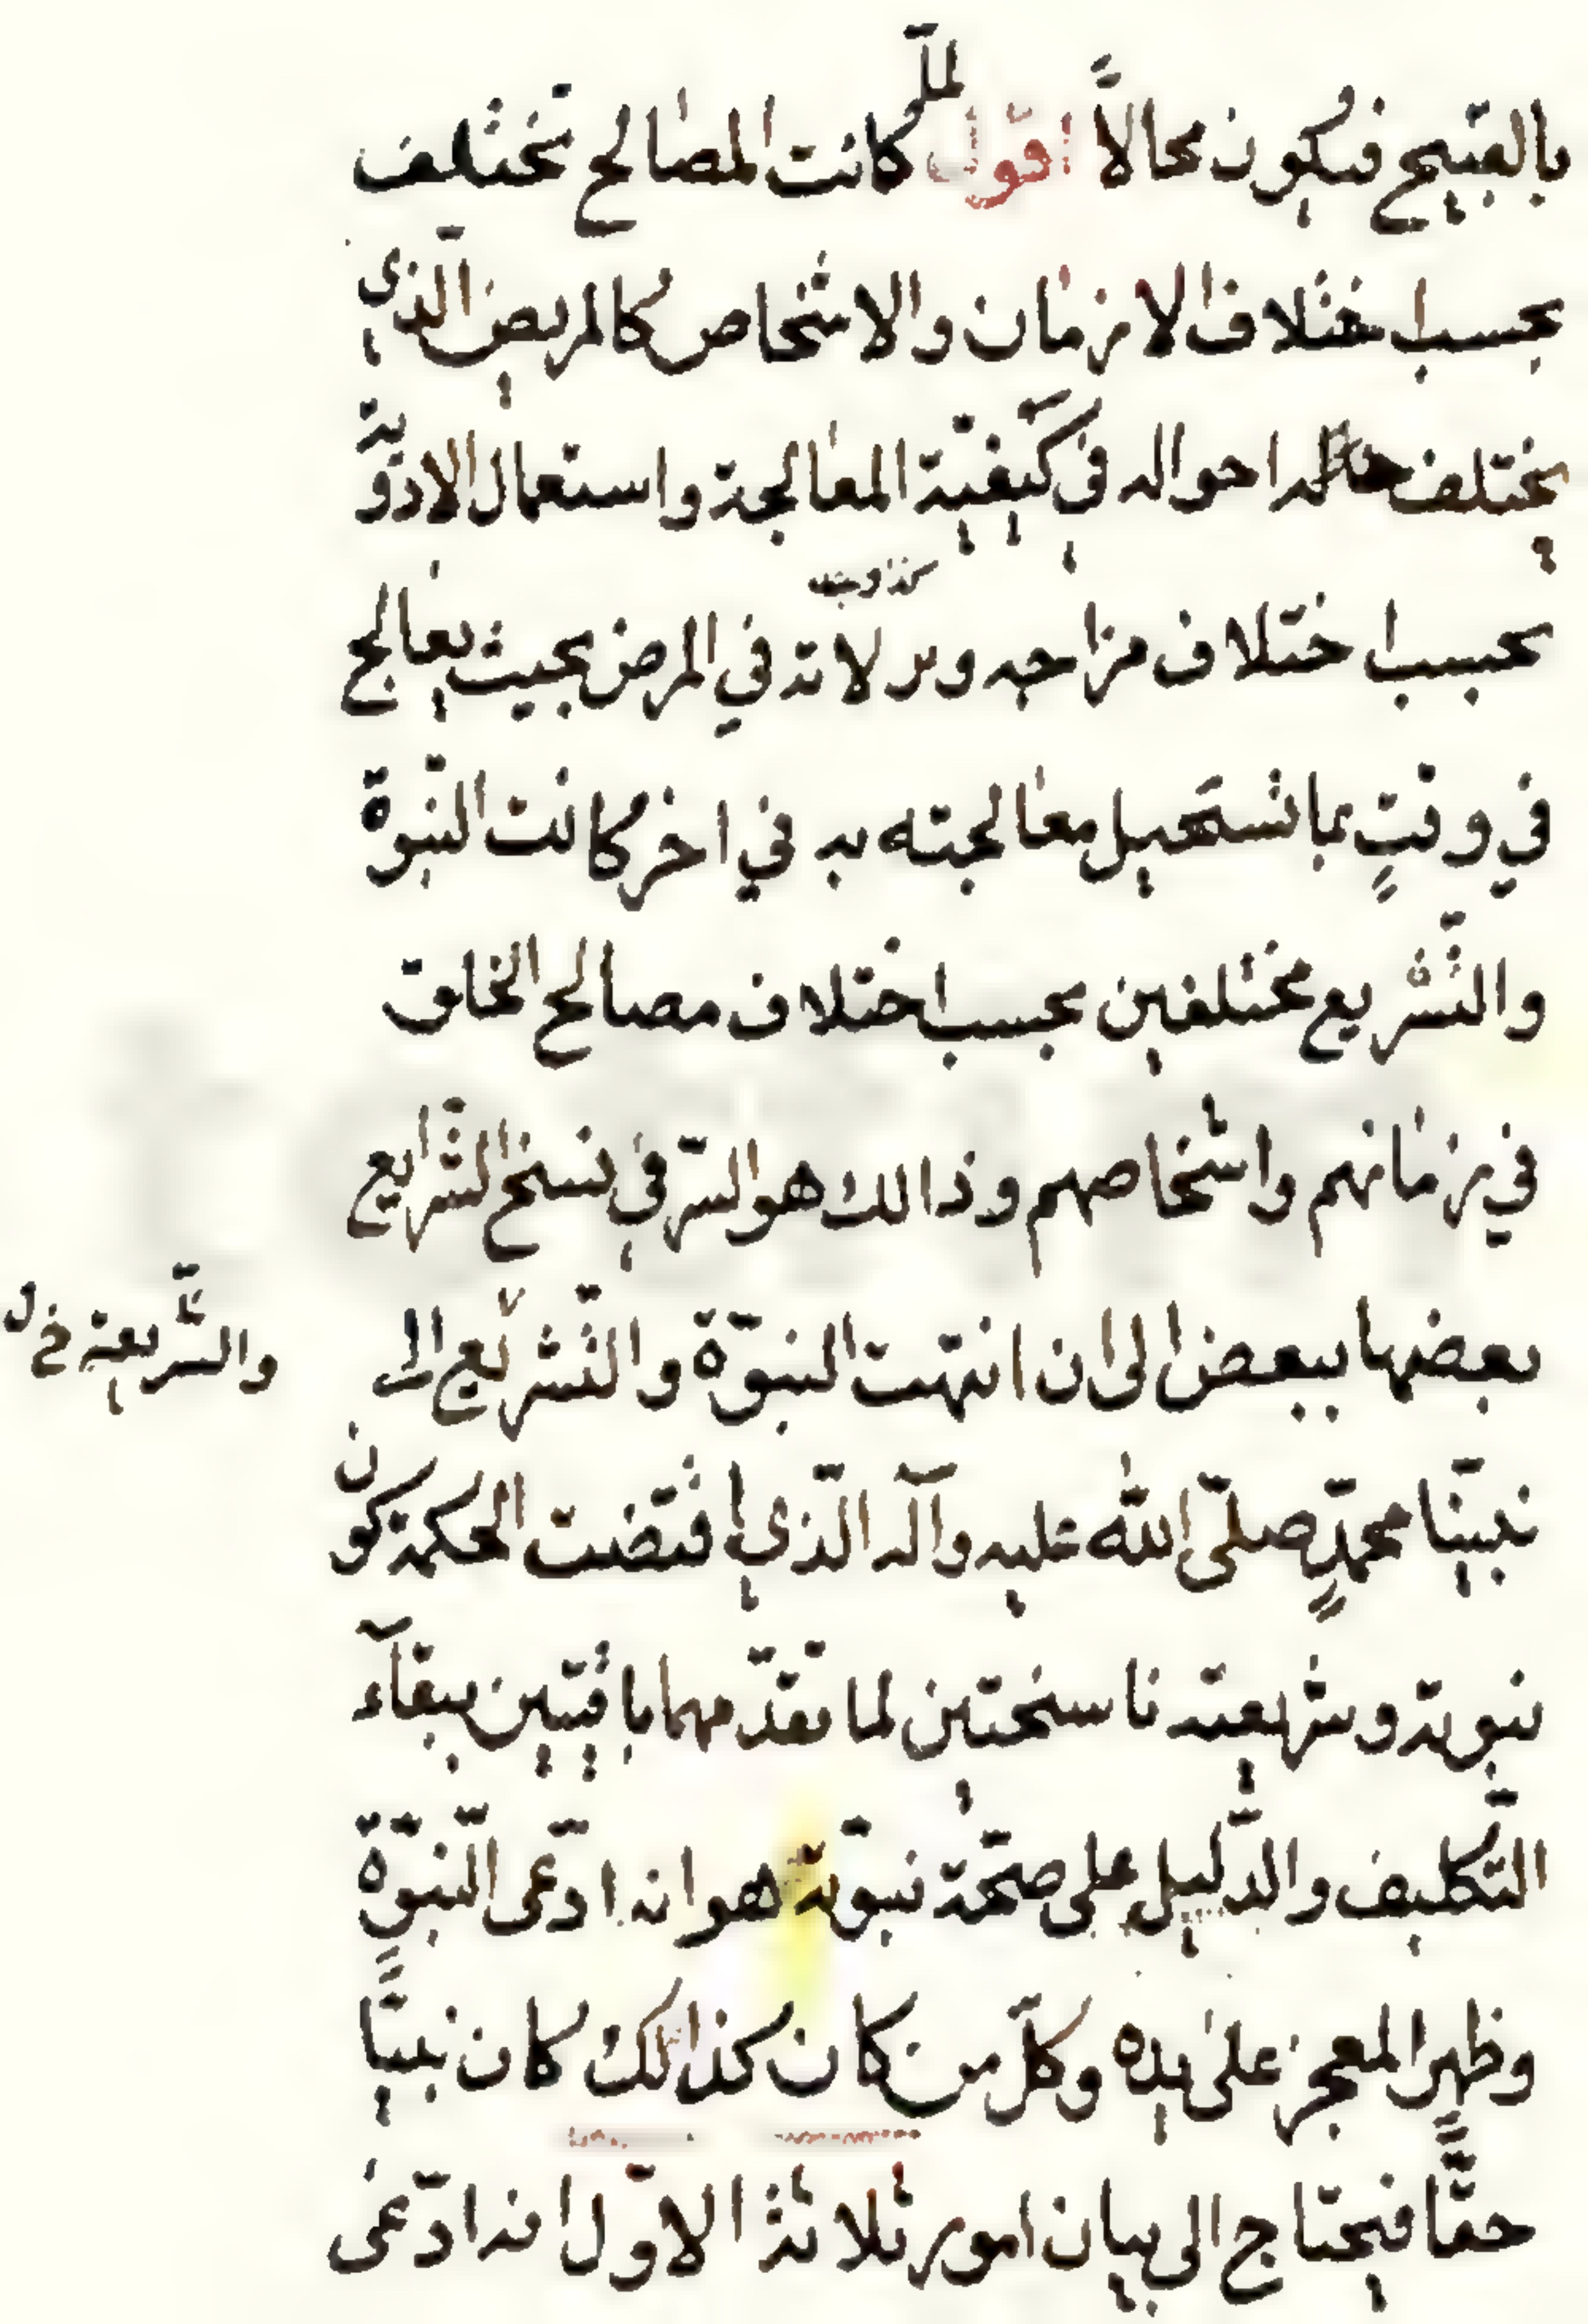 بالقبيح فيكون محالاً اقول لمّا كانت المصالح تختلف
بحسب اختلاف الازمان والاشخاص كالمريض الّذي
يختلف احواله في كيفية المعالجة واستعمال الادوية
بحسب اختلاف مزاجه و لاته في المرض بحيث يعالج
في وقتٍ بما تستحيل معالجته به في اخر كانت النّبوة
والتّشريع مختلفين بحسب اختلاف مصالح الخلق
في زمانهم واشخاصهم وذالك هو السّر في نسخ الشّرايع
بعضها ببعض الى ان انتهت النبوّة والتّشريع الى
والشّريعة خ ل
نبيّنا محمّدٍ صلّى الله عليه وآله الّذي اقتضت الحكمة كون
نبوته وشريعته ناسختين لما تقدّمهما باقيتين ببقآء
التّكليف والدّليل على صحّة نبوّته هو انه ادّعى النّبوّة
وظهر المعجز على يده وكلّ من كان كذالك كان نبيّاً
حقّاً فيحتاج الى بيان امور ثلاثة الاوّل انه ادّعى